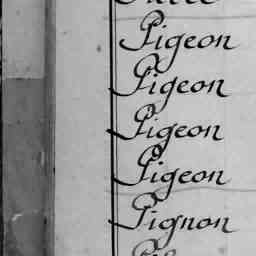 Pigeon
Pigeon
Pigeon
Pigeon
Pignon